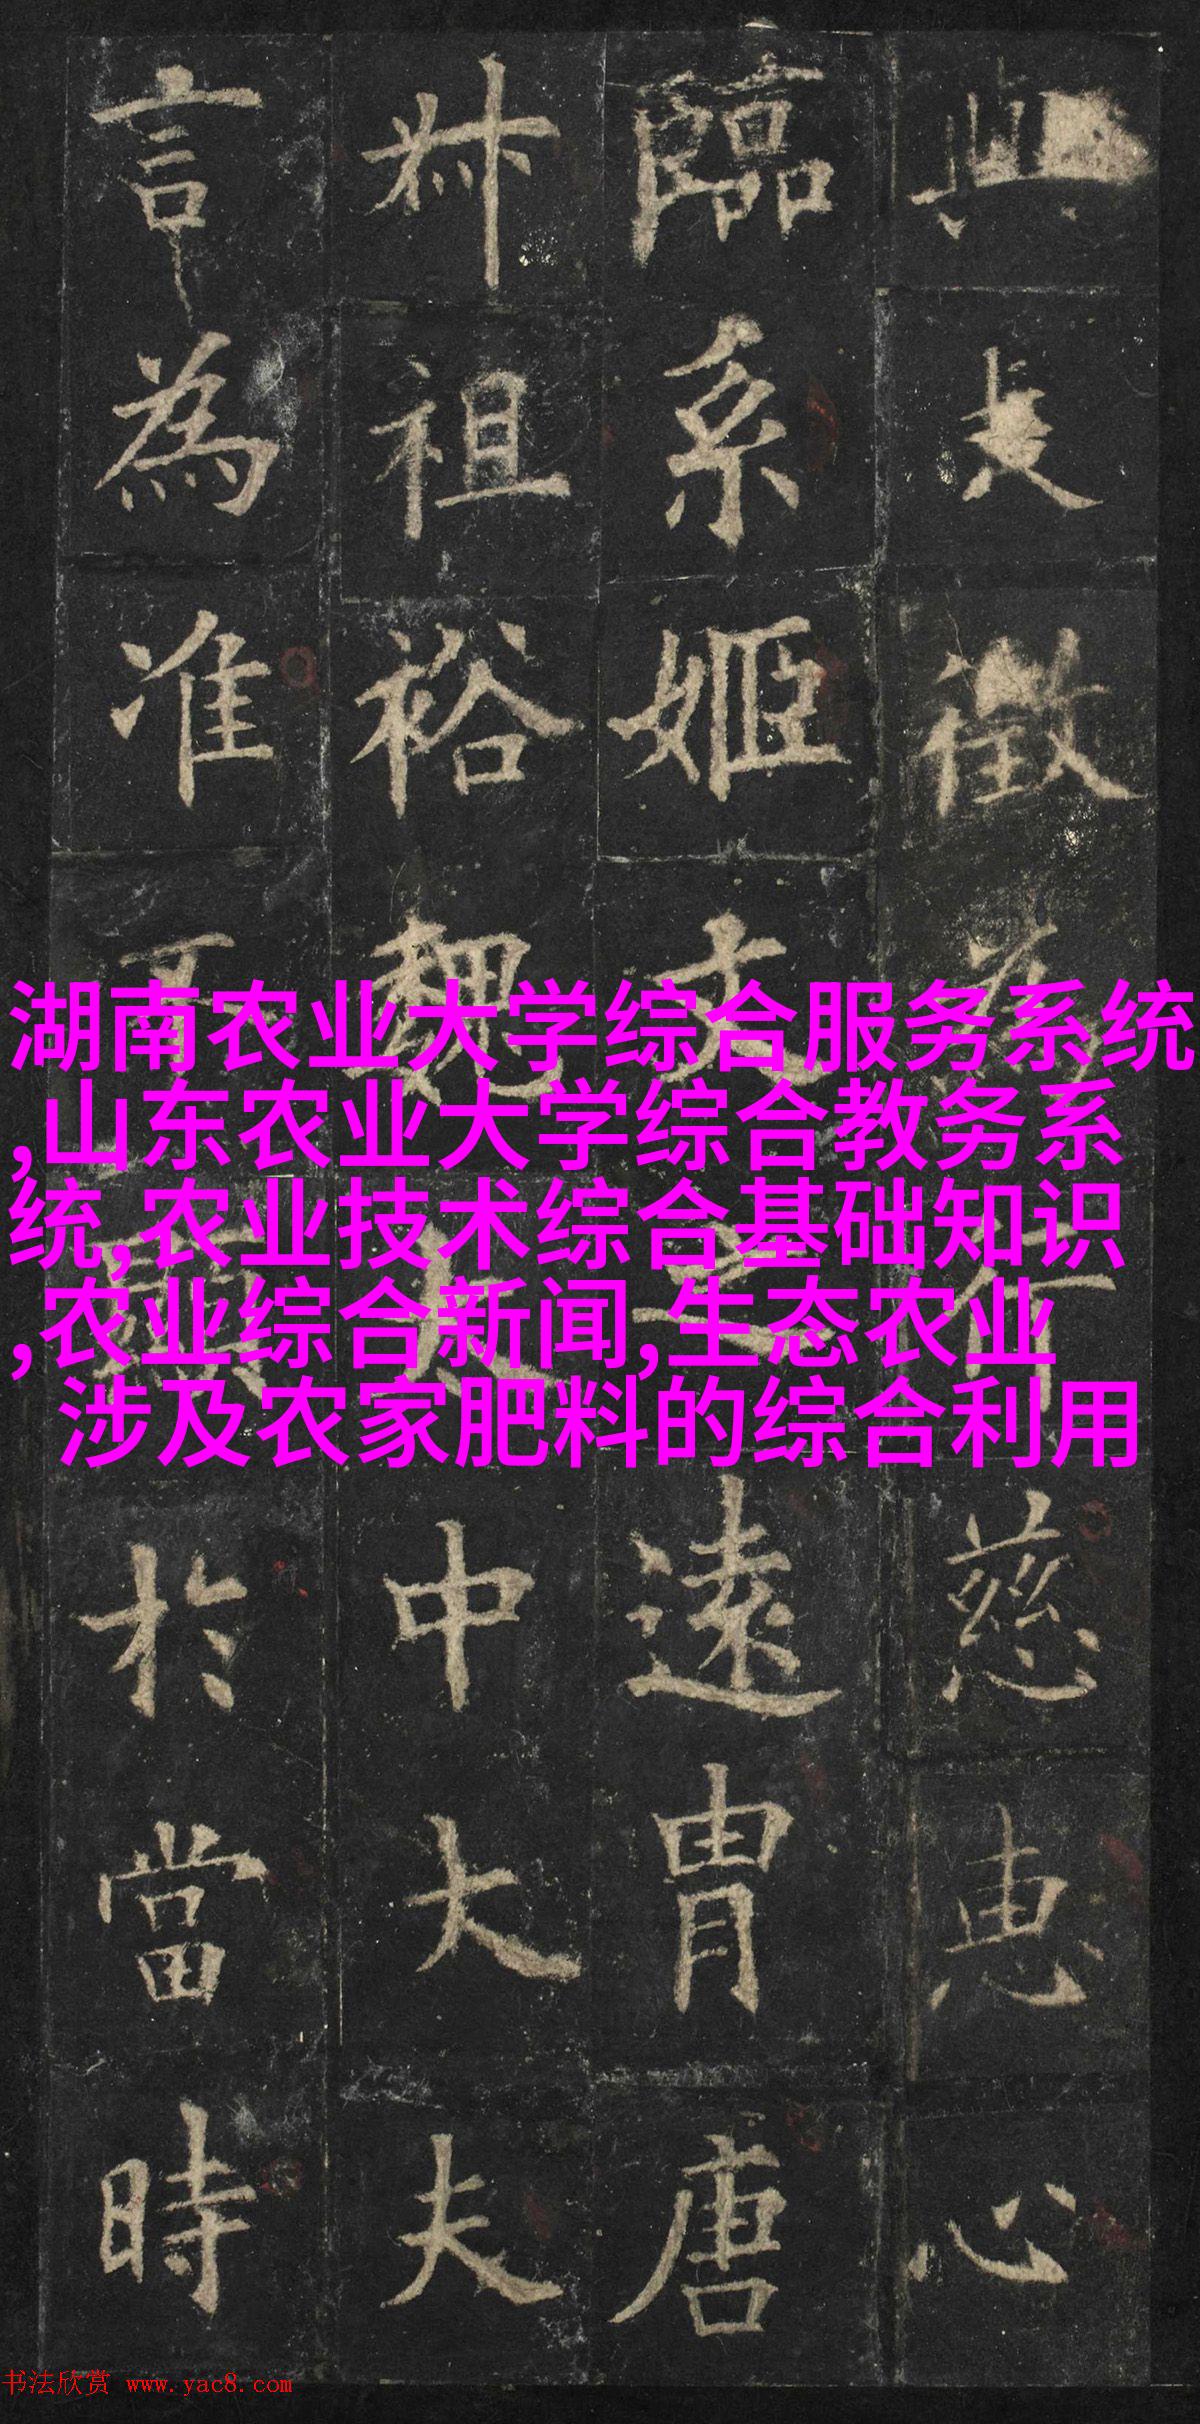 湖南农业大学综合服务系统
,山东农业大学综合教务系
统,农业技术综合基础知识
,农业综合新闻,生态农业
涉及农家肥料的综合利用
徵行慈惠心
臨系姬文遠胄唐
祖裕魏太中大夫
言為准於當時
书法欣赏 www.yac8.com